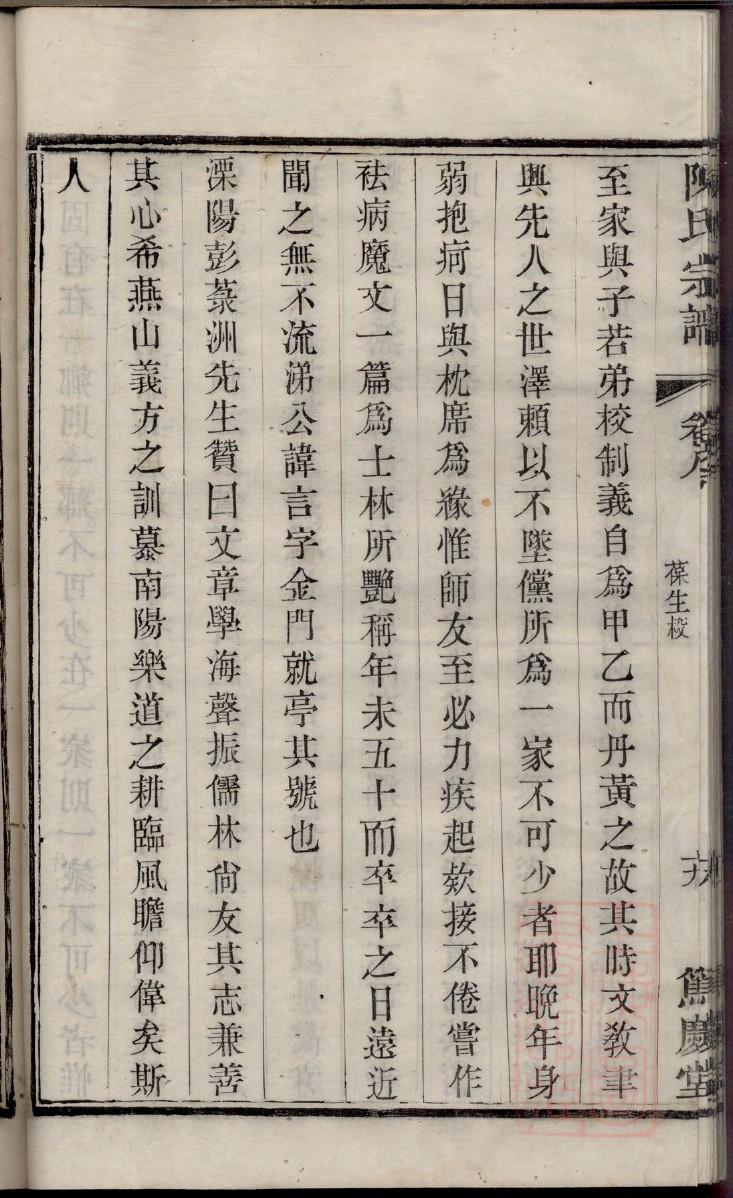 陳氏宗譜
葆生校
篤慶堂
至家與子若弟校制義自爲甲乙而丹黃之故其時文敎聿
興先人之世澤頼以不墜儻所爲一家不可少者耶晩年身
弱抱疴日與枕席爲緣惟師友至必力疾起欵接不倦嘗作
祛病魔文一篇爲士林所艷稱年未五十而卒卒之日遠近
聞之無不流涕公諱言字金門就亭其號也
溧陽彭菉洲先生贊曰文章學海聲振儒林尙友其志兼善
其心希燕山義方之訓慕南陽樂道之耕臨風瞻仰偉矣斯
人